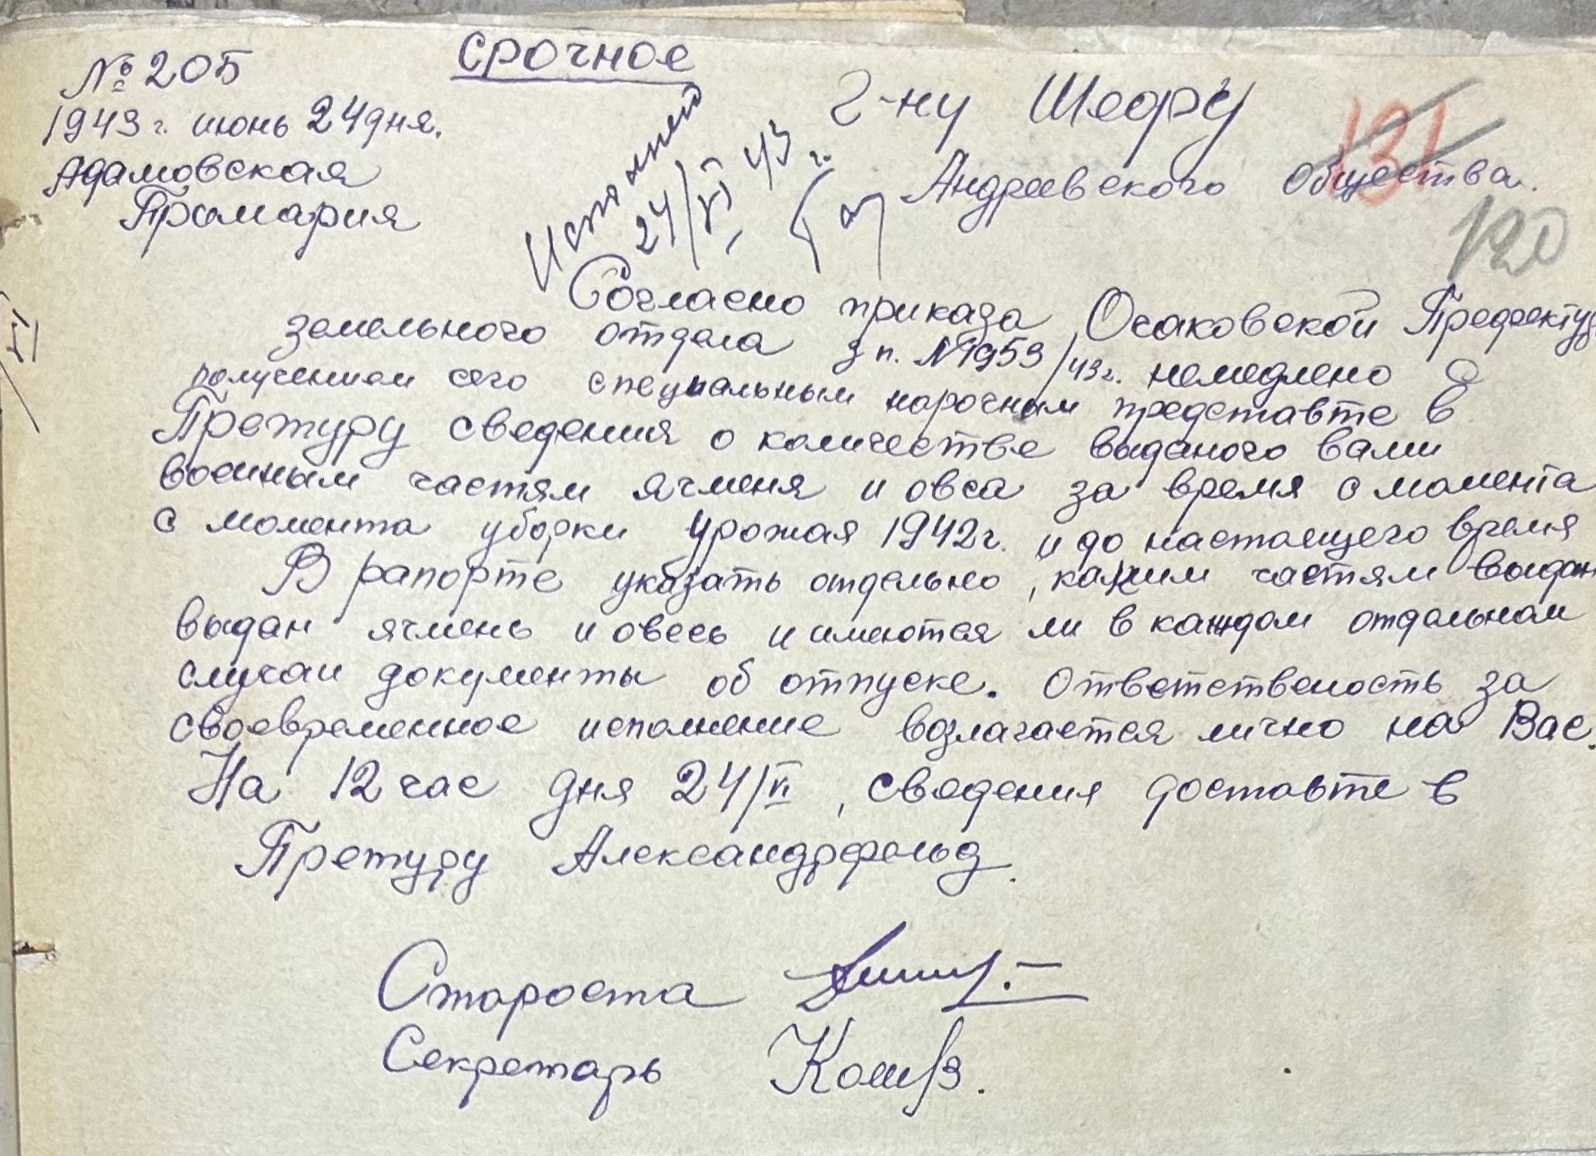 Срочное
№ 205
1943 г. июнь 24 дня.
Адамовская
Промария
Исполнено
24/VI 43 г.
Г-ну Шефу
Андреевского общества.
131
120
VI
Согласно приказа Очаковской Префекту
земельного отдела з п. №1953/43г. немедлено с
получением сего специальным нарочным представте в
Претуру сведения о количестве выданого вами
военным частям ячменя и овса за время с момента
с момента уборки урожая 1942г. и до настоящего время
В рапорте указать отдельно, каким частям выдан
выдан ячмень и овесь и имеются ли в каждом отдельном
случаи документы об отпуске. Ответственость за
своевременное исполнение возлагается лично на Вас.
На 12 час дня 24/VI, сведения доставте в
Претуру Александрфельд.
Староста
Секретарь